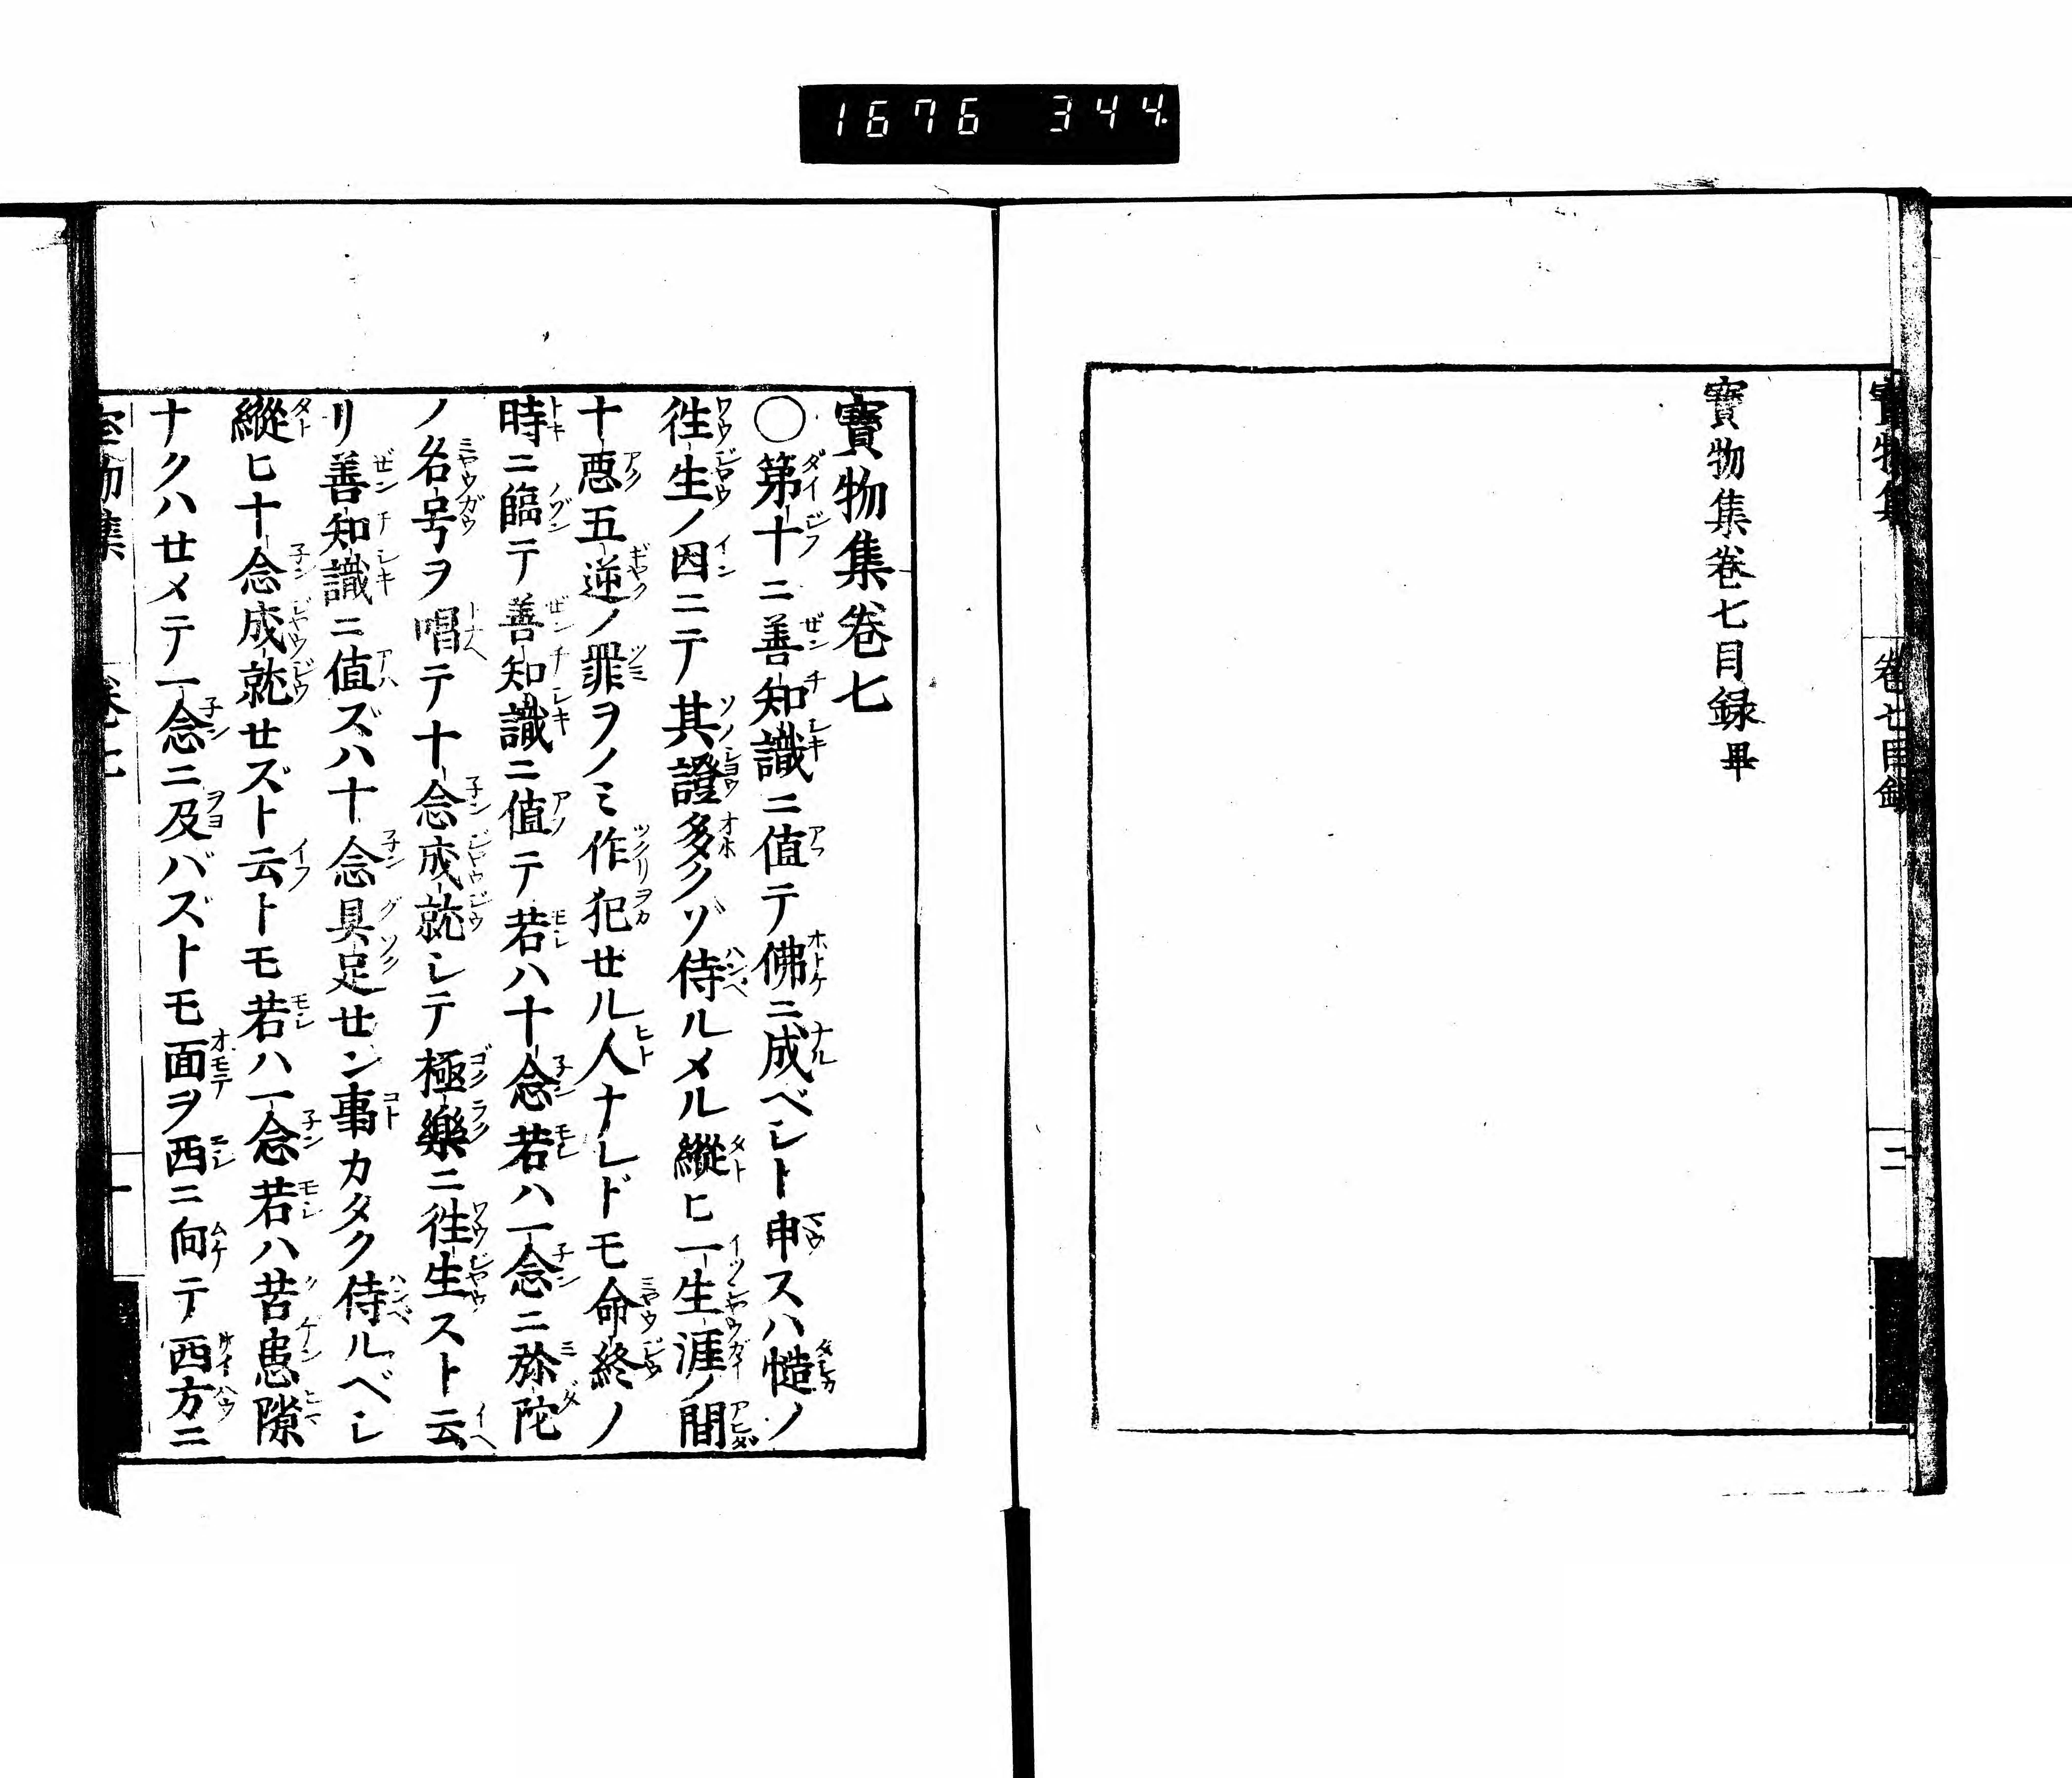 1676 344.
寳物集 卷七目録 二
寳物集卷七目録畢
寳物集卷七
〇第十ニ善知識ニ値テ佛ニ成ベシト申スハ慥ノ
徃生ノ因ニテ其證多クゾ侍ルメル縱ヒ一生涯ノ間
十惡五逆ノ罪ヲノミ作犯セル人ナレドモ命終ノ
時ニ臨テ善知識ニ値テ若ハ十念若ハ一念ニ弥陀
ノ名号ヲ唱テ十念成就シテ極樂ニ徃生スト云
リ善知識ニ値ズハ十念具足セン事カタク侍ルベシ
縱ヒ十念成就セズト云トモ若ハ一念若ハ苦患隙
ナクハせメテ一念ニ及バズトモ面ヲ西ニ向テ西方ニ
物集 卷七 一